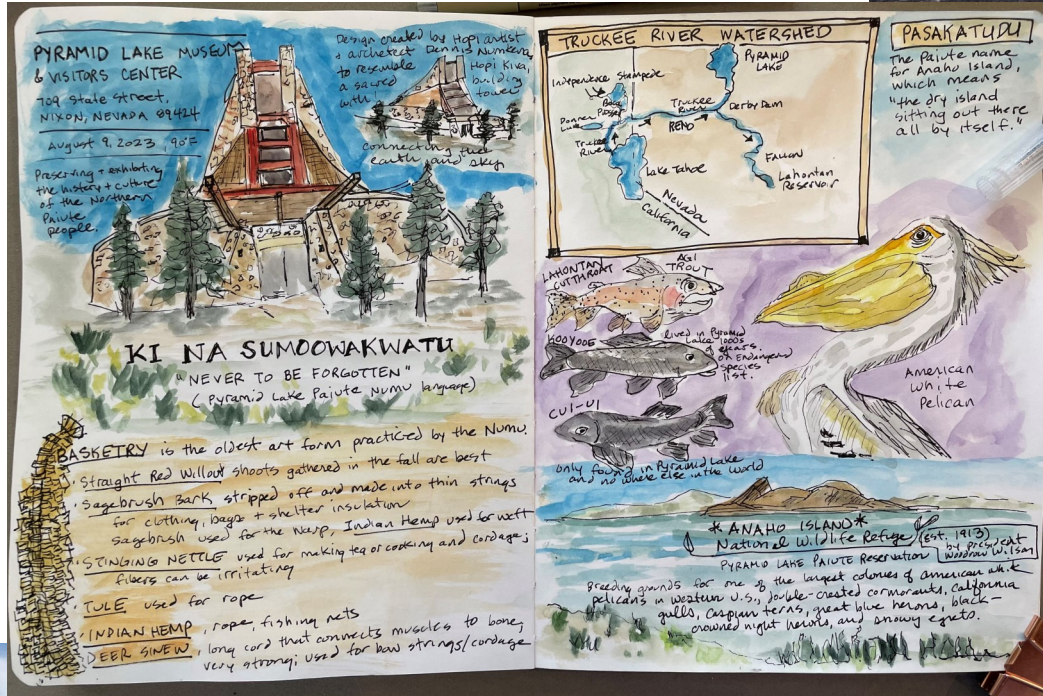 PYRAMID LAKE MUSEUM
& VISITORS CENTER
709 State Street,
NIXON, NEVADA 89424
August 9, 2023, 90°F
Preserving + exhibiting
the history + culture
of the Northern
Paiute
people.
Design created by Hopi artist
+ architect Dennis Numkena
to resemble Hopi Kiva,
a sacred building
with tower
connecting the
earth and sky
KI NA SUMOOWAKWATU
"NEVER TO BE FORGOTTEN"
(Pyramid Lake Paiute Numu language)
BASKETRY is the oldest art form practiced by the Numu.
· Straight Red Willow shoots gathered in the fall are best
· Sagebrush Bark stripped off and made into thin strings
for clothing, bags + shelter insulation
sagebrush used for the warp, Indian Hemp used for weft
· STINGING NETTLE used for making tea or cooking and cordage;
fibers can be irritating
· TULE used for rope
· INDIAN HEMP, rope, fishing nets
· DEER SINEW, long cord that connects muscles to bone;
very strong; used for bow strings/cordage
TRUCKEE RIVER WATERSHED
PYRAMID
LAKE
Independence Stampede
Boca
Donner
Lake
Truckee
River
Truckee
River
Derby Dam
RENO
FALLON
Lahontan
Reservoir
Lake Tahoe
Nevada
California
PASAKATUDU
The Paiute name
for Anaho Island,
which means
"the dry island
sitting out there
all by itself."
LAHONTAN
CUTTHROAT
AGI
TROUT
KOOYOOE
lived in Pyramid
Lake 1000s
of years.
on Endangered
species
list.
CUI-UI
only found in Pyramid Lake
and no where else in the world
American
White
Pelican
*ANAHO ISLAND*
National Wildlife Refuge (est. 1913)
by president
Woodrow Wilson
PYRAMID LAKE PAIUTE RESERVATION
Breeding grounds for one of the largest colonies of american white
pelicans in western U.S., double-crested cormorants, california
gulls, caspian terns, great blue herons, black-
crowned night herons, and snowy egrets.